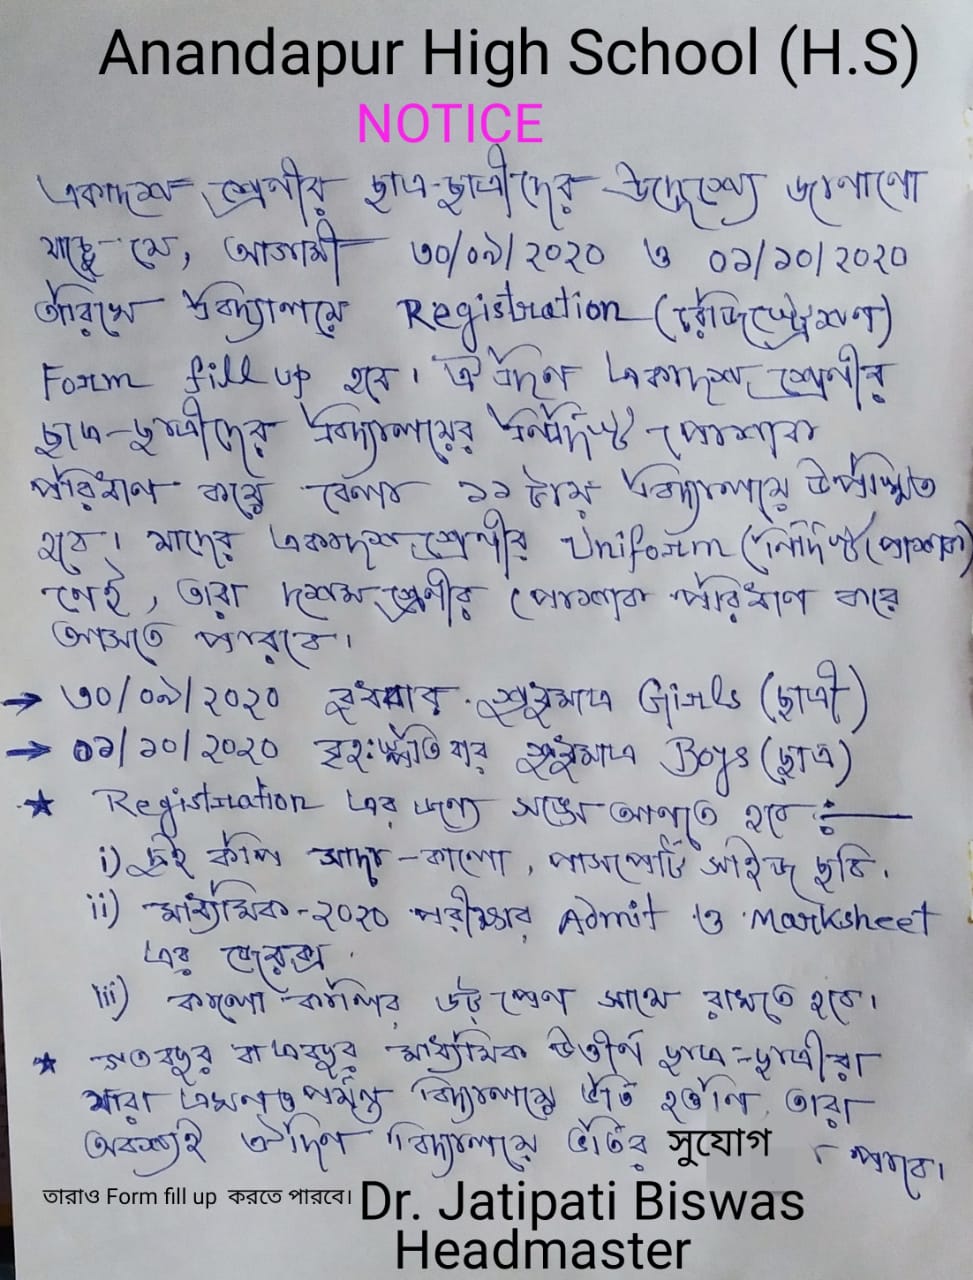 Anandapur High School (H.S)
NOTICE
একাদশ শ্রেনীর ছাত্র-ছাত্রীদের উদ্দেশ্যে জানানো
যাচ্ছে যে, আগামী ৩০/০৯/২০২০ ও ০১/১০/২০২০
তারিখে বিদ্যালয়ে Registration (রেজিস্ট্রেশন)
Form fill up হবে। ঐ দিন একাদশ শ্রেনীর
ছাত্র-ছাত্রীদের বিদ্যালয়ের নির্দিষ্ট পোশাক
পরিধান করে বেলা ১১ টায় বিদ্যালয়ে উপস্থিত
হবে। যাদের একাদশ শ্রেনীর Uniform (নির্দিষ্ট পোশাক)
নেই, তারা দশম শ্রেনীর পোশাক পরিধান করে
আসতে পারবে।
→ ৩০/০৯/২০২০ বুধবার শুধুমাত্র Girls (ছাত্রী)
→ ০১/১০/২০২০ বৃহঃস্পতিবার শুধুমাত্র Boys (ছাত্র)
★ Registration এর জন্যে সঙ্গে আনতে হবে :—
i) দুই কপি সাদা-কালো, পাসপোর্ট সাইজ ছবি.
ii) মাধ্যমিক-২০২০ পরীক্ষার Admit ও Marksheet
এর জেরক্স.
iii) কালো কালির ডট্ পেন সাথে রাখতে হবে।
★ গতবছর বা এবছর মাধ্যমিক উত্তীর্ন ছাত্র-ছাত্রীরা
যারা এখনও পর্যন্ত বিদ্যালয়ে ভর্তি হওনি তারা
অবশ্যই ঐদিন বিদ্যালয়ে ভর্তির সুযোগ পাবে।
তারাও Form fill up করতে পারবে।
Dr. Jatipati Biswas
Headmaster